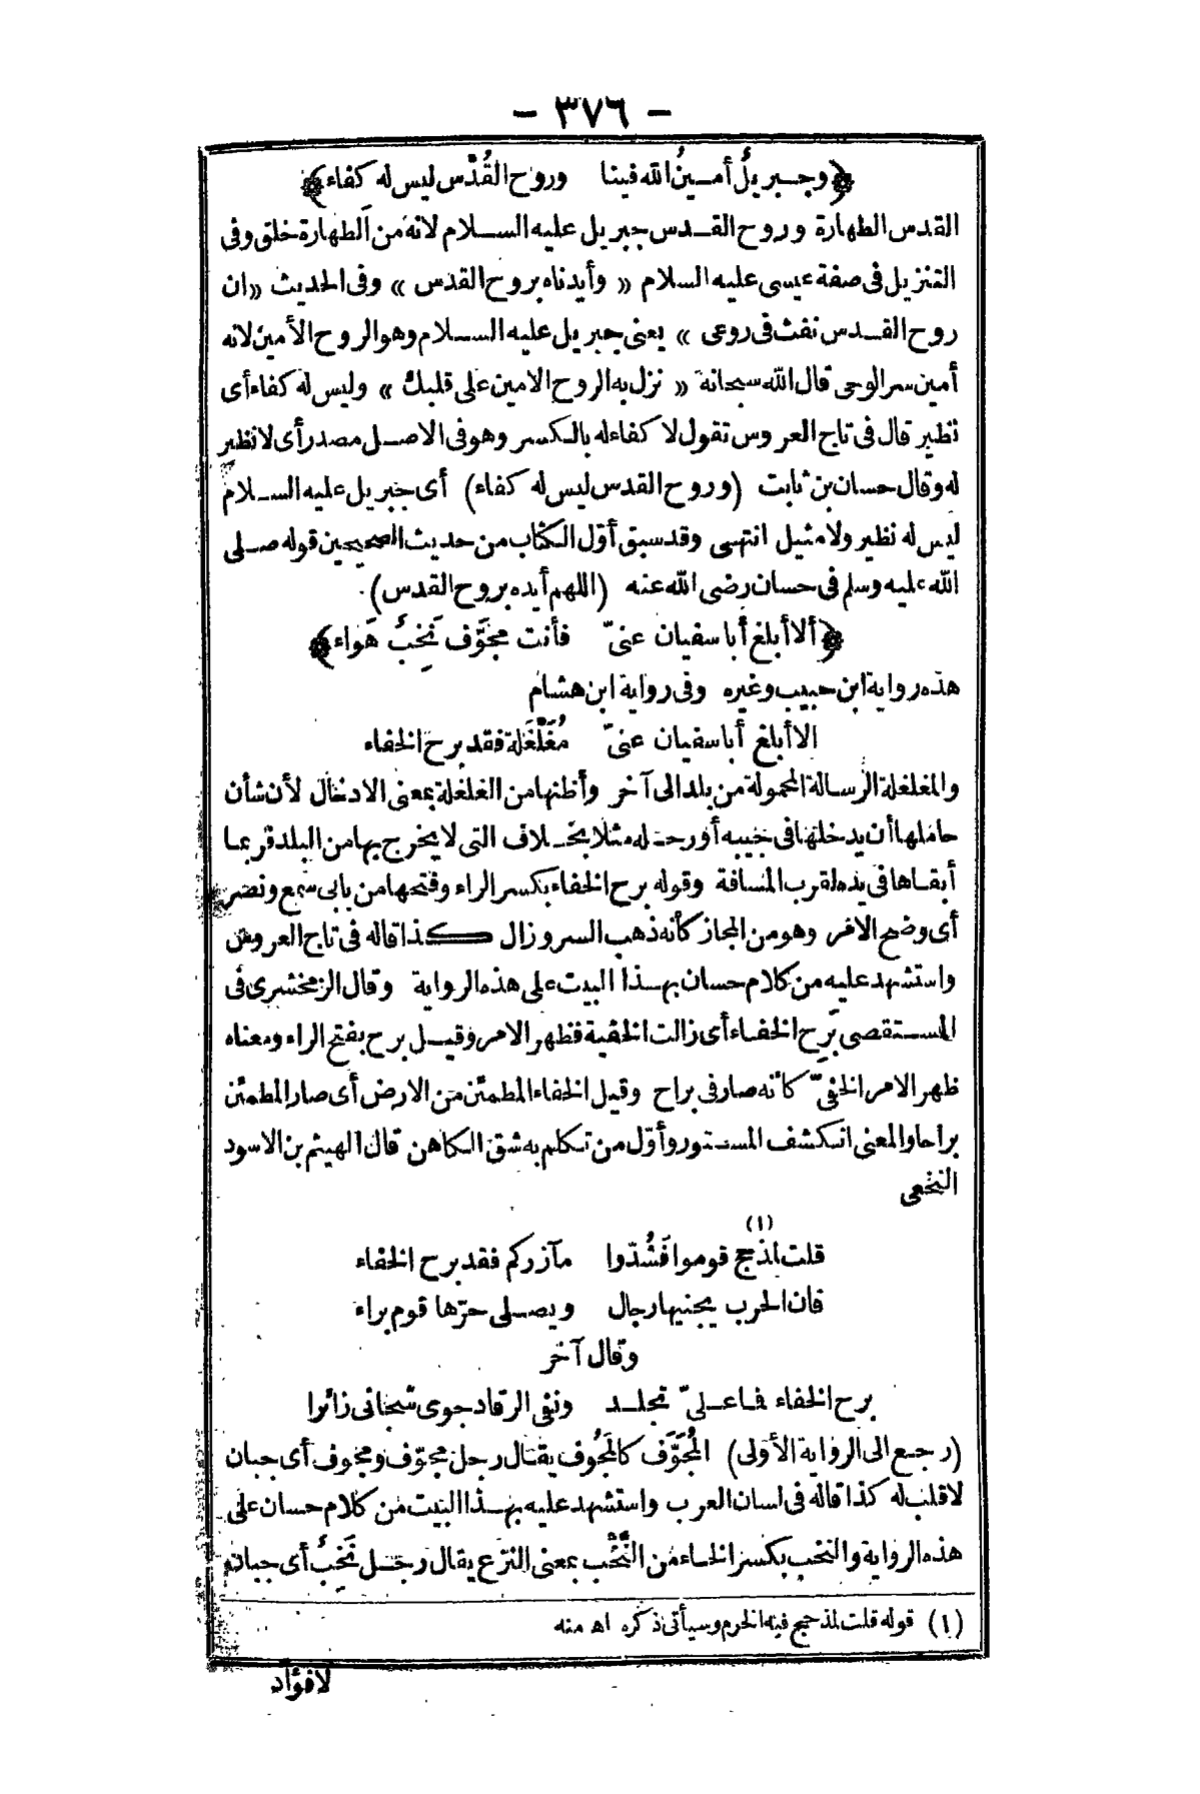 - ٣٧٦ -
﴿وجبريلُ أمينُ الله فينا وروح القُدْس ليس له كفاء﴾
القدس الطهارة وروح القدس جبريل عليه السلام لانه من الطهارة خلق وفى
التنزيل فى صفة عيسى عليه السلام « وأيدناه بروح القدس » وفى الحديث «ان
روح القدس نفث فى روعى » يعنى جبريل عليه السلام وهو الروح الأمين لانه
أمين سر الوحى قال الله سبحانه « نزل به الروح الامين على قلبك » وليس له كفاء أى
نظير قال فى تاج العروس تقول لا كفاء له بالكسر وهو فى الاصل مصدر أى لا نظير
له وقال حسان بن ثابت (وروح القدس ليس له كفاء) أى جبريل عليه السلام
ليس له نظير ولا مثيل انتهى وقد سبق أوّل الكتاب من حديث الصحيحين قوله صلى
الله عليه وسلم فى حسان رضى الله عنه (اللهم أيده بروح القدس).
﴿ألا أبلغ أبا سفيان عنىّ فأنت مجوَّف نَخِبٌ هَواء﴾
هذه رواية ابن حبيب وغيره وفى رواية ابن هشام
الا أبلغ أبا سفيان عنىّ مُغَلْغَلة فقد برح الخفاء
والمغلغلة الرسالة المحمولة من بلد الى آخر وأظنها من الغلغلة بمعنى الادخال لأن شأن
حاملها أن يدخلها فى جيبه أو رحله مثلا بخلاف التى لا يخرج بها من البلد فربما
أبقاها فى يده لقرب المسافة وقوله برح الخفاء بكسر الراء وفتحها من بابى سمع ونصر
أى وضح الامر وهو من المجاز كأنه ذهب السر وزال كذا قاله فى تاج العروس
واستشهد عليه من كلام حسان بهذا البيت على هذه الرواية وقال الزمخشرى فى
المستقصى بَرِح الخفاء أى زالت الخفية فظهر الامر وقيل برح بفتح الراء ومعناه
ظهر الامر الخفىّ كأنه صار فى براح وقيل الخفاء المطمئن من الارض أى صار المطمئن
براحا والمعنى انكشف المستور وأوّل من تكلم به شق الكاهن قال الهيثم بن الاسود
النخعى
(١)
قلت لمذحج قوموا فَشُدّوا مآزركم فقد برح الخفاء
فان الحرب يجنيها رجال ويصلى حرّها قوم براء
وقال آخر
برح الخفاء فما علىّ تجلد ونفى الرقاد جوى شجانى زائرا
(رجع الى الرواية الأولى) المُجَوَّف كالمَجُوف يقال رجل مجوّف ومجوف أى جبان
لا قلب له كذا قاله فى لسان العرب واستشهد عليه بهذا البيت من كلام حسان على
هذه الرواية والنخب بكسر الخاء من النَّخْب بمعنى النزع يقال رجل نَخِبٌ أى جبان
(١) قوله قلت لمذحج فيه الخرم وسيأتى ذكره اه منه
لا فؤاد